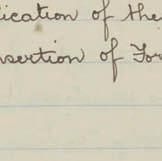 ication of the
nsertion of For